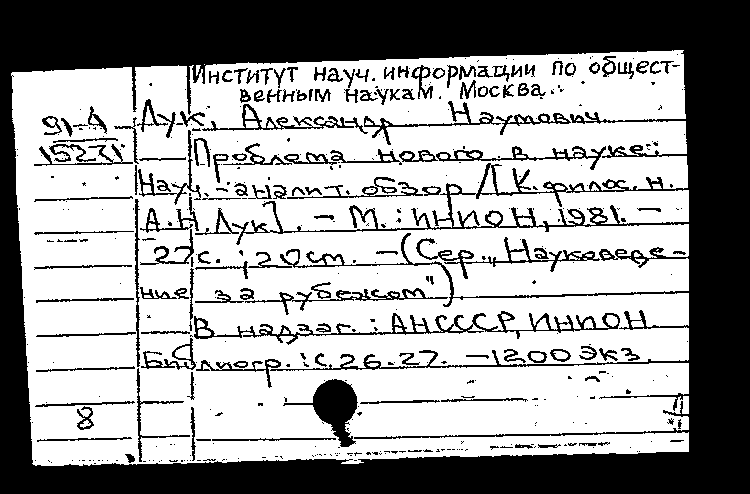 Институт науч. информации по общест-
венным наукам. Москва.
91-4
15271
Лук, Александр Наумович
Проблема нового в науке:
Науч.-аналит. обзор / [К. филос. н.
А.Н. Лук]. - М.: ИНИОН, 1981. -
27 с.; 20 см. - (Сер. „Науковеде-
ние за рубежом")
В надзаг.: АН СССР, ИНИОН
Библиогр.: с. 26-27. - 1200 экз.
8